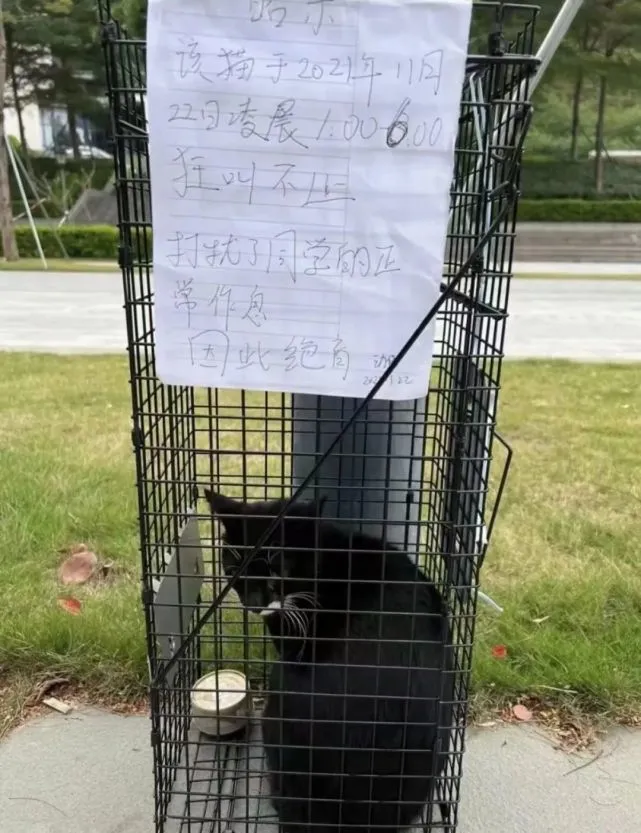 该猫于2021年11月
22日凌晨1:00-6:00
狂叫不止
打扰了同学的正
常作息
因此绝育